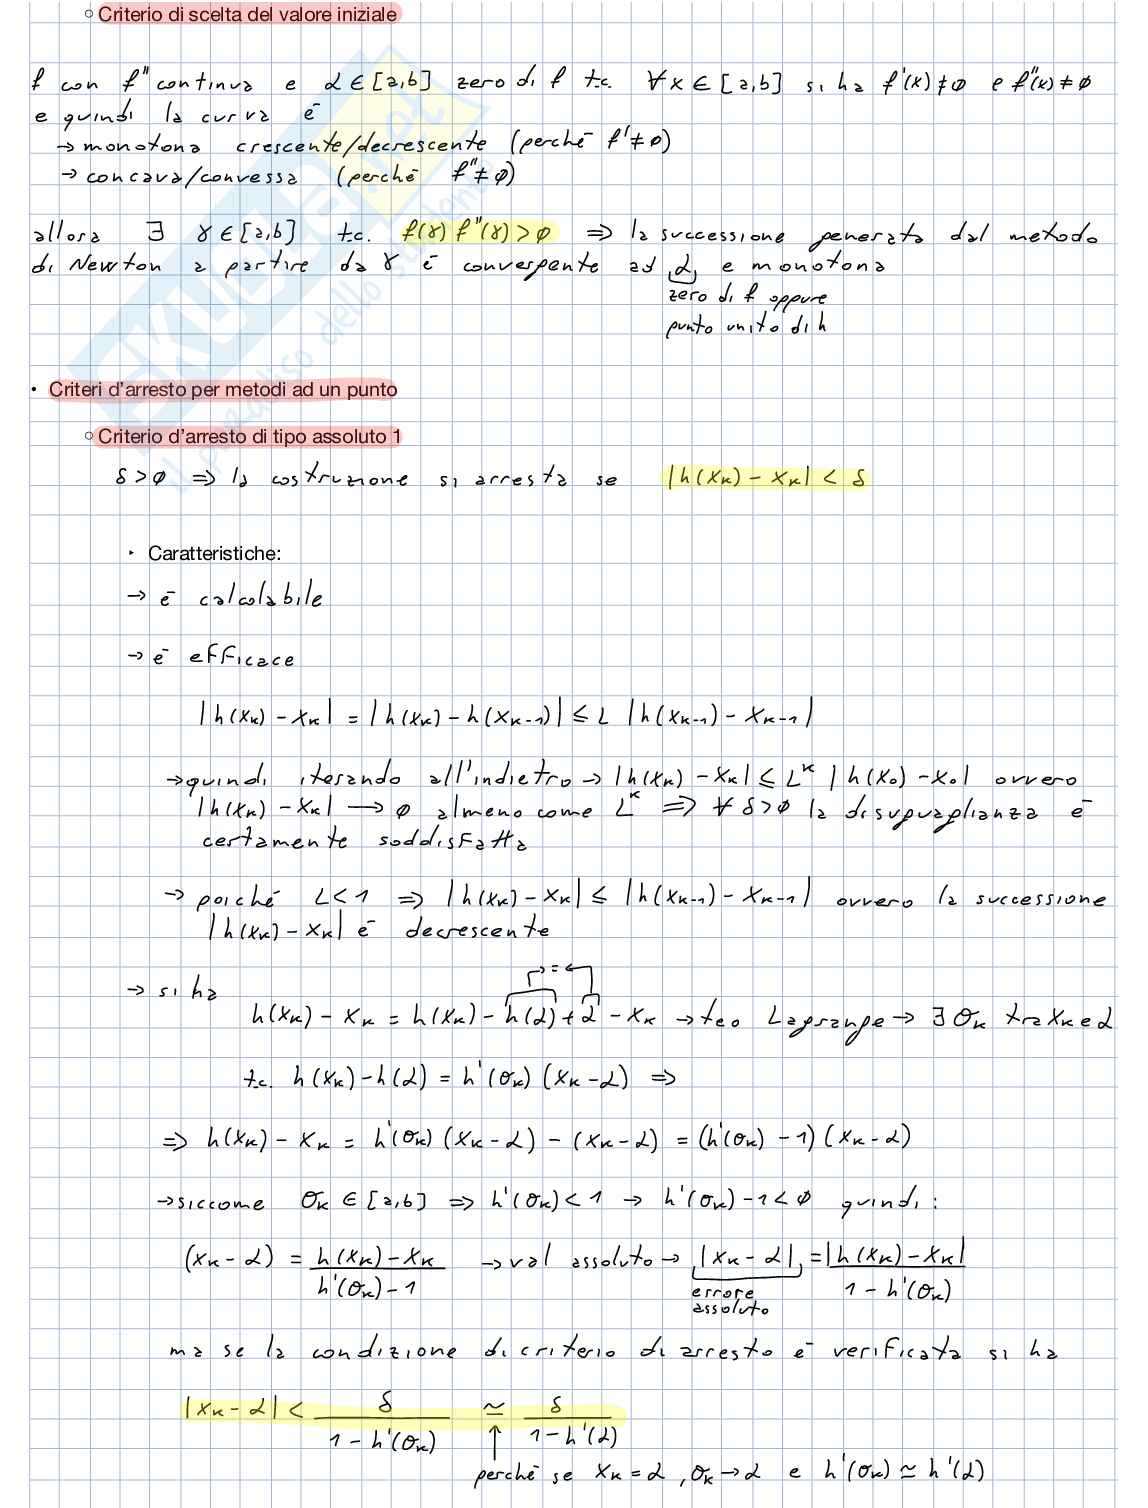 ◦ Criterio di scelta del valore iniziale
f con f'' continua e α ∈ [a,b] zero di f t.c. ∀x ∈ [a,b] si ha f'(x) ≠ 0 e f''(x) ≠ 0
e quindi la curva è
→ monotona crescente/decrescente (perché f' ≠ 0)
→ concava/convessa (perché f'' ≠ 0)
allora ∃ γ ∈ [a,b] t.c. f(γ) f''(γ) > 0 ⇒ la successione generata dal metodo
di Newton a partire da γ è convergente ad α, e monotona
zero di f oppure
punto unito di h
• Criteri d'arresto per metodi ad un punto
◦ Criterio d'arresto di tipo assoluto 1
δ > 0 ⇒ la costruzione si arresta se |h(xₖ) - xₖ| < δ
‣ Caratteristiche:
→ è calcolabile
→ è efficace
|h(xₖ) - xₖ| = |h(xₖ) - h(xₖ₋₁)| ≤ L |h(xₖ₋₁) - xₖ₋₁|
→ quindi iterando all'indietro → |h(xₖ) - xₖ| ≤ Lᴷ |h(x₀) - x₀| ovvero
|h(xₖ) - xₖ| → 0 almeno come Lᴷ ⇒ ∀ δ > 0 la disuguaglianza è
certamente soddisfatta
→ poiché L < 1 ⇒ |h(xₖ) - xₖ| ≤ |h(xₖ₋₁) - xₖ₋₁| ovvero la successione
|h(xₖ) - xₖ| è decrescente
→ si ha
→ = ←
h(xₖ) - xₖ = h(xₖ) - h(α) + α - xₖ → teo Lagrange → ∃ σₖ tra xₖ e α
t.c. h(xₖ) - h(α) = h'(σₖ) (xₖ - α) ⇒
⇒ h(xₖ) - xₖ = h'(σₖ) (xₖ - α) - (xₖ - α) = (h'(σₖ) - 1) (xₖ - α)
→ siccome σₖ ∈ [a,b] ⇒ h'(σₖ) < 1 → h'(σₖ) - 1 < 0 quindi:
(xₖ - α) = (h(xₖ) - xₖ) / (h'(σₖ) - 1) → val assoluto → |xₖ - α| = |h(xₖ) - xₖ| / (1 - h'(σₖ))
errore
assoluto
ma se la condizione di criterio di arresto è verificata si ha
|xₖ - α| < δ / (1 - h'(σₖ)) ≃ δ / (1 - h'(α))
↑
perché se xₖ = α, σₖ → α e h'(σₖ) ≃ h'(α)
SKUOLA.net
il paradiso dello studente